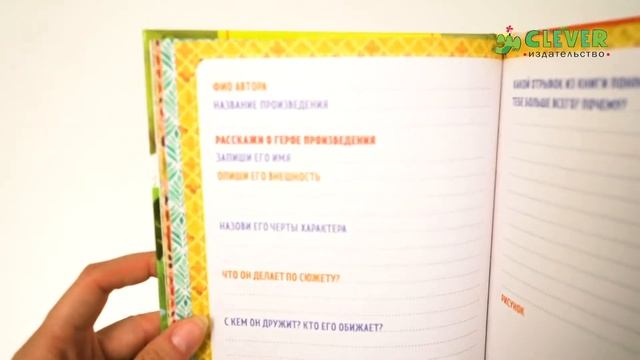 CLEVER
издательство
ФИО АВТОРА
НАЗВАНИЕ ПРОИЗВЕДЕНИЯ
РАССКАЖИ О ГЕРОЕ ПРОИЗВЕДЕНИЯ
ЗАПИШИ ЕГО ИМЯ
ОПИШИ ЕГО ВНЕШНОСТЬ
НАЗОВИ ЕГО ЧЕРТЫ ХАРАКТЕРА
ЧТО ОН ДЕЛАЕТ ПО СЮЖЕТУ?
С КЕМ ОН ДРУЖИТ? КТО ЕГО ОБИЖАЕТ?
КАКОЙ ОТРЫВОК ИЗ КНИГИ
ТЕБЕ БОЛЬШЕ ВСЕГО? ПОЧЕМУ?
РИСУНОК